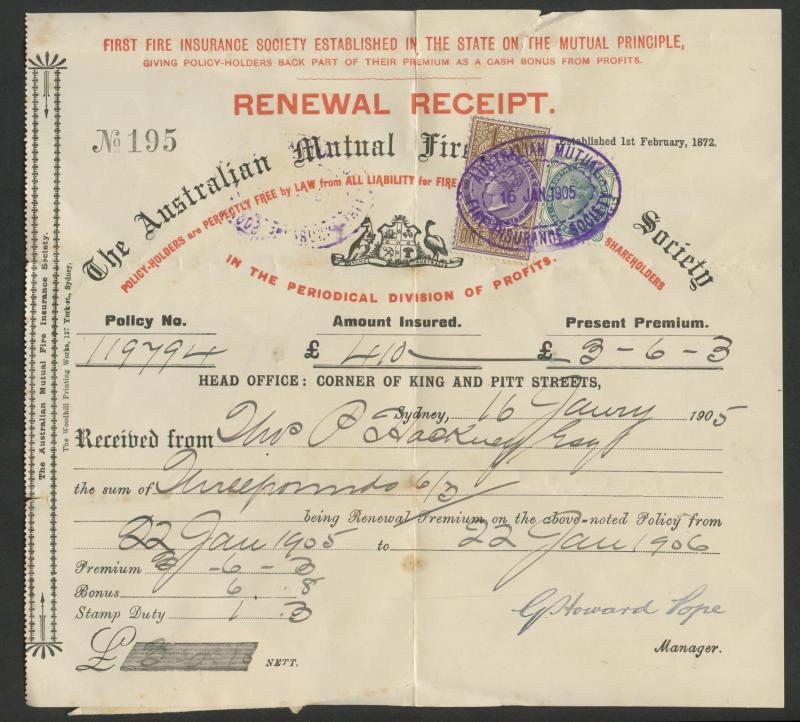 FIRST FIRE INSURANCE SOCIETY ESTABLISHED IN THE STATE ON THE MUTUAL PRINCIPLE,
GIVING POLICY-HOLDERS BACK PART OF THEIR PREMIUM AS A CASH BONUS FROM PROFITS.
RENEWAL RECEIPT.
No 195
Established 1st February, 1872.
The Australian Mutual Fire Society
POLICY-HOLDERS are PERFECTLY FREE by LAW from ALL LIABILITY for FIRE
SHAREHOLDERS
IN THE PERIODICAL DIVISION OF PROFITS.
AUSTRALIAN MUTUAL
16 JAN 1905
FIRE INSURANCE SOCIETY
ONE
ADVANCE AUSTRALIA
Policy No. Amount Insured. Present Premium.
119794 £ 410 £ 3-6-3
HEAD OFFICE: CORNER OF KING AND PITT STREETS,
Sydney, 16 Janry 1905
Received from Thos P Hackney Esq
the sum of Three pounds 6/3
being Renewal Premium on the above-noted Policy from
22 Jan 1905 to 22 Jan 1906
Premium 3-6-3
Bonus 6.8
Stamp Duty 1.3
G. Howard Pope
Manager.
£ NETT.
The Australian Mutual Fire Insurance Society.
The Woodhill Printing Works, 127 York-st., Sydney.